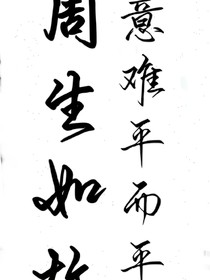 意难平而平
周生如故